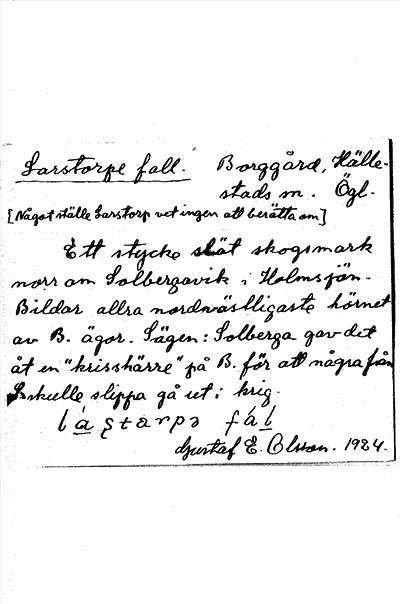 Larstorpe fall. Borggård, Hälle-
stads sn. Ögl.
[Något ställe Larstorp vet ingen att berätta om]
Ett stycke slät skogsmark
norr om Solbergavik i Holmsjön.
Bildar allra nordvästligaste hörnet
av B. ägor. Sägen: Solberga gav det
åt en "krisshärre" på B. för att några från
S. skulle slippa gå ut i krig.
Gustaf E. Olsson. 1924.